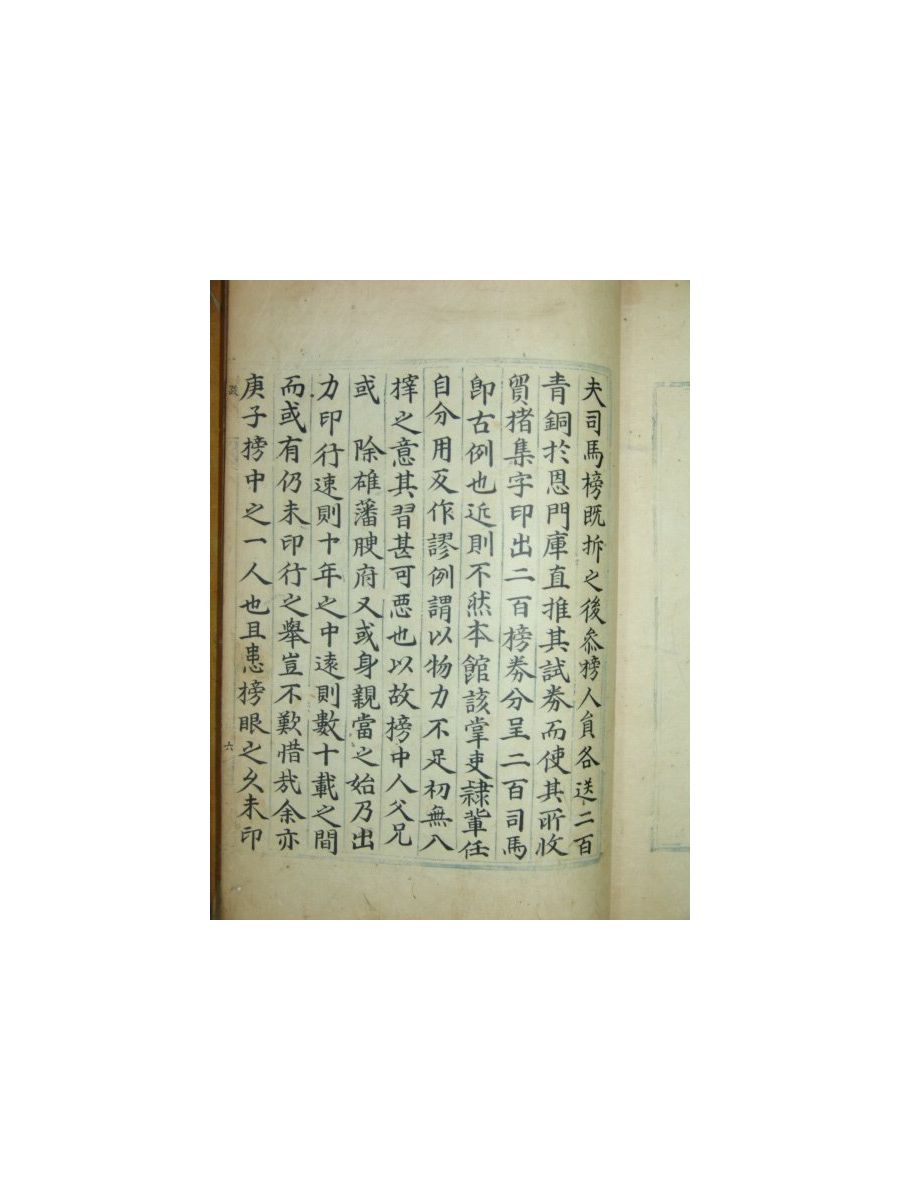 夫司馬榜旣拆之後叅榜人員各送二百
青銅於恩門庫直推其試券而使其所收
貿楮集字印出二百榜券分呈二百司馬
卽古例也近則不然本館該掌吏隷軰任
自分用反作謬例謂以物力不足初無入
擇之意其習甚可惡也以故榜中人父兄
或 除雄藩腴府又或身親當之始乃出
力印行速則十年之中遠則數十載之間
而或有仍未印行之擧豈不歎惜哉余亦
庚子榜中之一人也且患榜眼之久未印
跋 六